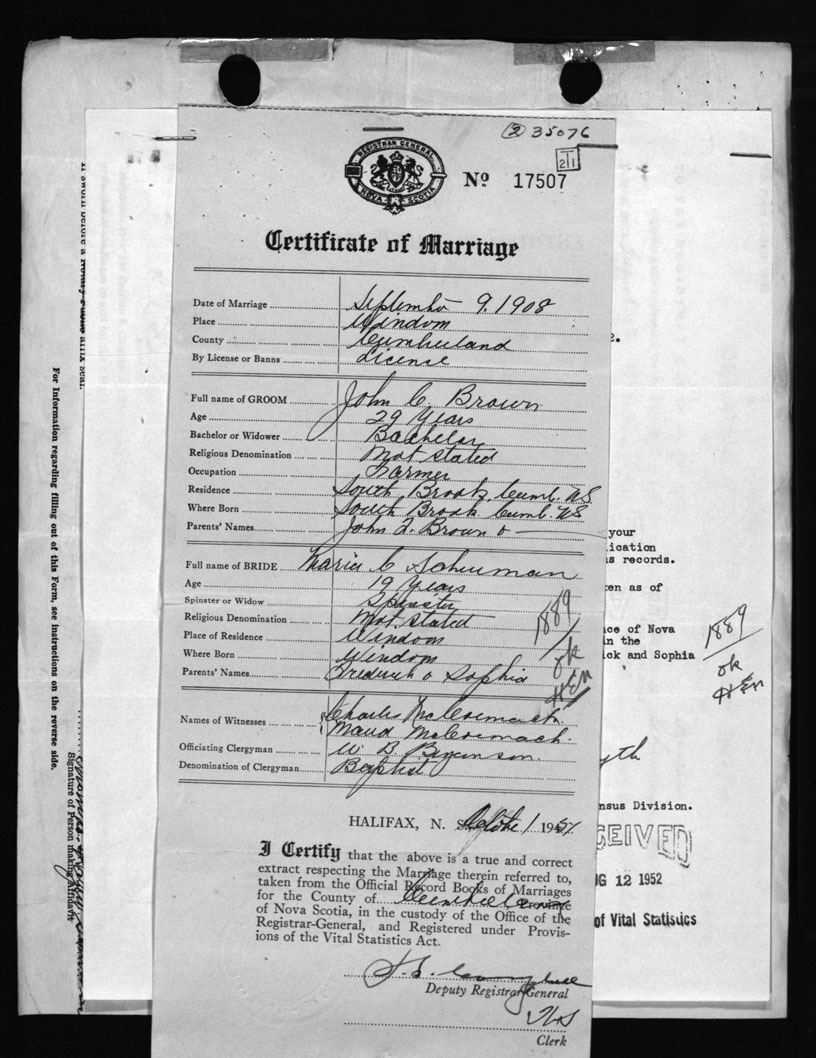 ② 35076
REGISTRAR GENERAL
NOVA SCOTIA
No 17507
Certificate of Marriage
Date of Marriage September 9, 1908
Place Windom
County Cumberland
By License or Banns License
Full name of GROOM John C. Brown
Age 29 Years
Bachelor or Widower Bachelor
Religious Denomination Not Stated
Occupation Farmer
Residence South Brook, Cumb. NS
Where Born South Brook Cumb. NS
Parents' Names John Brown
Full name of BRIDE C Schurman
Age 19 Years
Spinster or Widow Spinster
Religious Denomination Not Stated
Place of Residence Windom
Where Born Windom
Parents' Names Frederick & Sophia
1889
ok
HEM
Names of Witnesses Charles McCormack
Maud McCormack
Officiating Clergyman W. B.
Denomination of Clergyman Baptist
HALIFAX, N. S. 1951
I Certify that the above is a true and correct
extract respecting the Marriage therein referred to,
taken from the Official Record Books of Marriages
for the County of Cumberland Province
of Nova Scotia, in the custody of the Office of the
Registrar-General, and Registered under Provis-
ions of the Vital Statistics Act.
Deputy Registrar General
Clerk
e.
your
lication
s records.
ken as of
ce of Nova
in the
ick and Sophia
1889
ok
HEM
yth
nsus Division.
CEIVED
UG 12 1952
of Vital Statistics
For Information regarding filling out of this Form, see instructions on the reverse side.
Signature of Person making Affidavit